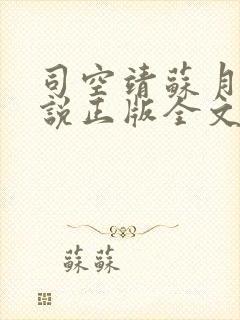 司空靖蘇月
說正版全文
蘇蘇